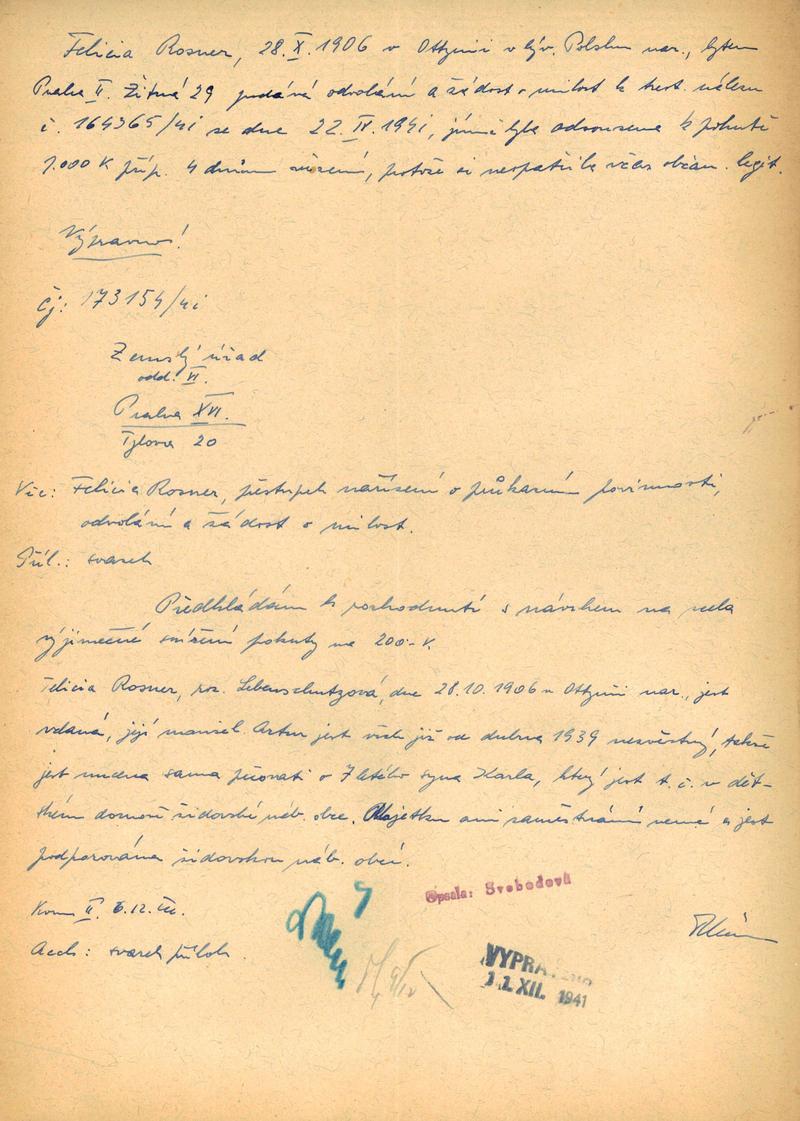 Felicia Rosner, 28.X.1906 v Ottynii v býv. Polsku nar., bytem
Praha II. Žitná 29 podává odvolání a žádost o milost k trest. nálezu
č. 164365/41 ze dne 22.IV.1941, jímž byla odsouzena k pokutě
1.000 K příp. 4 dnům vězení, protože si neopatřila včas občan. legit.
Výpravno!
Čj: 173154/41
Zemský úřad
odd. VI.
Praha XVI.
Tylova 20
Věc: Felicia Rosner, přestupek nařízení o průkazní povinnosti,
odvolání a žádost o milost.
Příl.: svazek
Předkládám k rozhodnutí s návrhem na zcela
výjimečné snížení pokuty na 200.- K.
Felicia Rosner, roz. Lebenschutzová, dne 28.10.1906 v Ottynii nar., jest
vdaná, její manžel Artur jest však již od dubna 1939 nezvěstný, takže
jest nucena sama pečovati o 7letého syna Karla, který jest t.č. v dět-
ském domově židovské náb. obce. Majetku ani zaměstnání nemá a jest
podporována židovskou náb. obcí.
II. 6.12.
Opsala: Svobodová
svazek příloh.
VYPRAVENO
11. XII. 1941